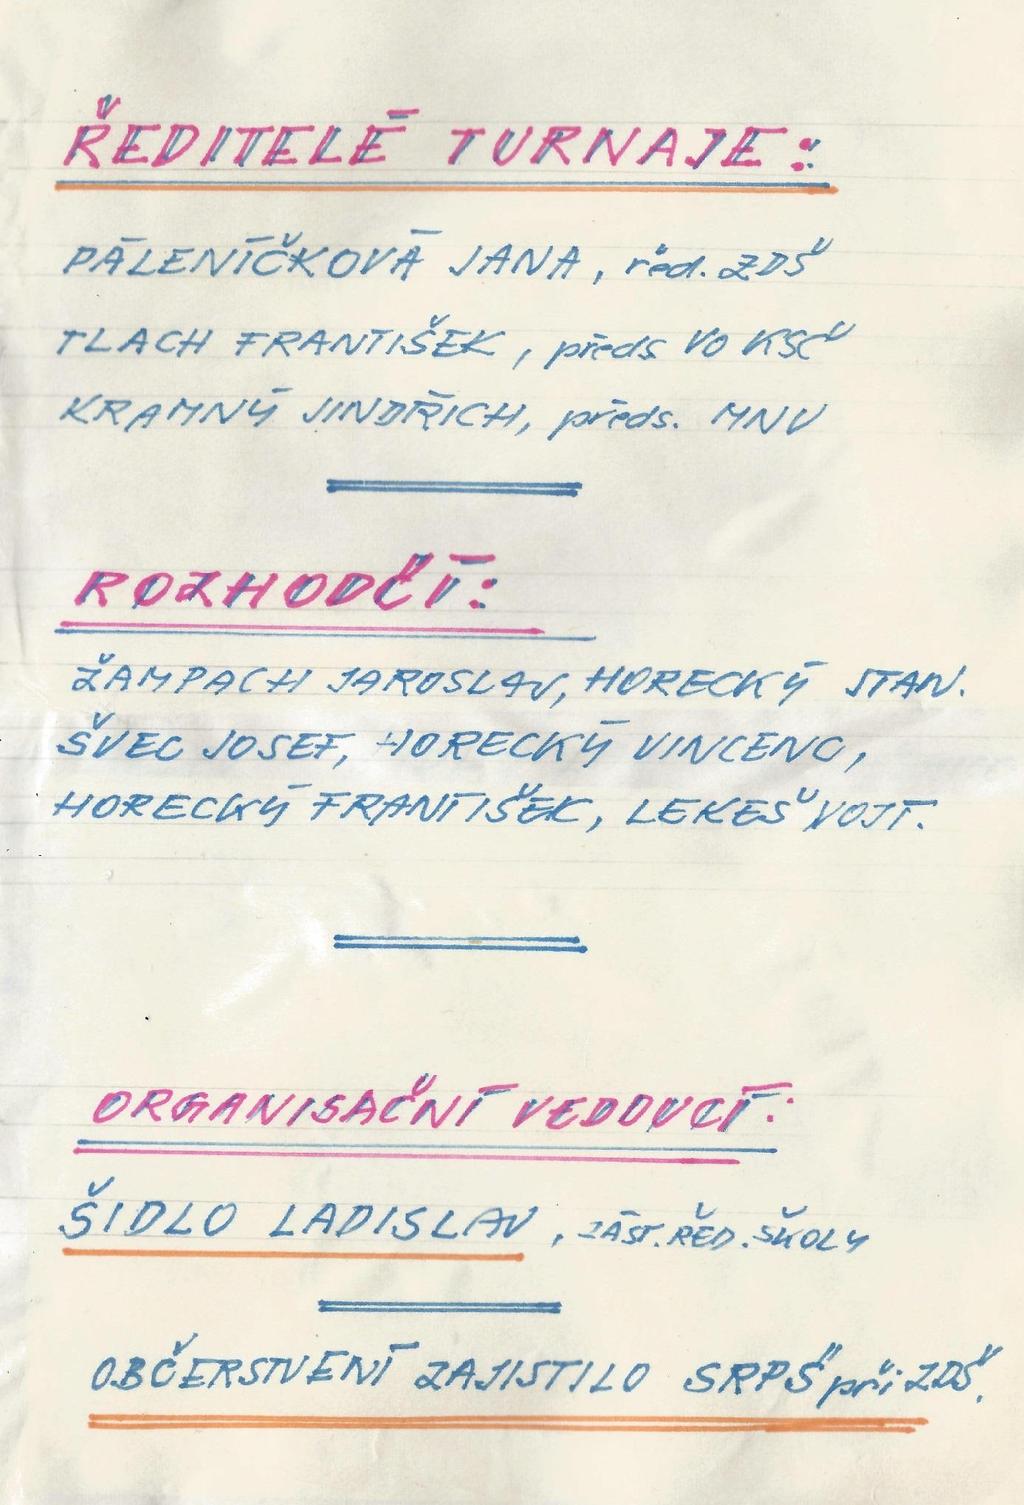 ŘEDITELÉ TURNAJE:
PÁLENÍČKOVÁ JANA, řed. ZDŠ
TLACH FRANTIŠEK, předs VO KSČ
KRAMNÝ JINDŘICH, předs. MNV
ROZHODČÍ:
ŽAMPACH JAROSLAV, HORECKÝ STAN.
ŠVEC JOSEF, HORECKÝ VINCENC,
HORECKÝ FRANTIŠEK, LEKEŠ VOJT.
ORGANISAČNÍ VEDOUCÍ:
ŠIDLO LADISLAV, ZÁST. ŘED. ŠKOLY
OBČERSTVENÍ ZAJISTILO SRPŠ při ZDŠ.